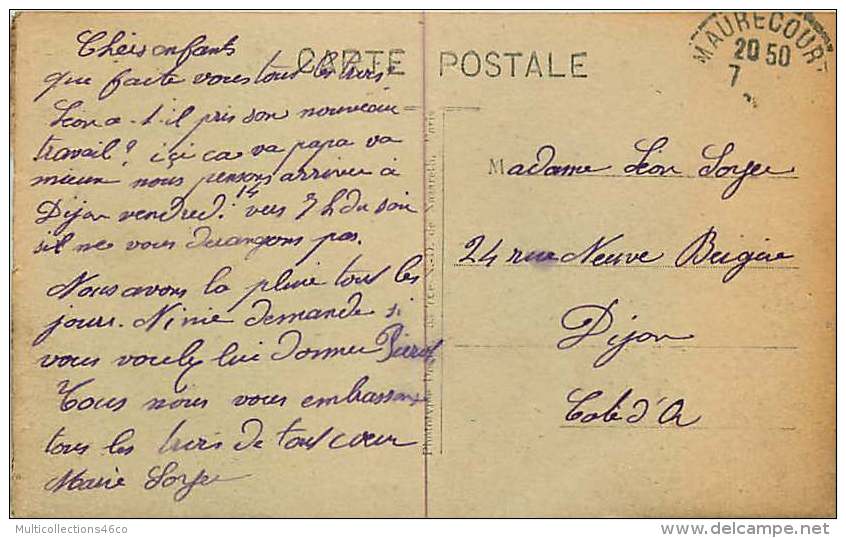 CARTE POSTALE
MAURECOURT
20 50
7
Chers enfants
que faite vous tous les trois
Leon a-t-il pris son nouveau
travail? ici ca va papa va
mieux nous pensons arriver à
Dijon vendredi 14 vers 7h du soir
si l ne vous derangons pas.
Nous avons la pluie tout les
jours. Nime demande si
vous voulez lui donner Pierrot,
Tous nous vous embrassons
tous les trois de tout cœur
Marie Sorgue
Madame Leon Sorgue
24 rue Neuve Bergère
Dijon
Cote d'Or
Multicollections46co
www.delcampe.net